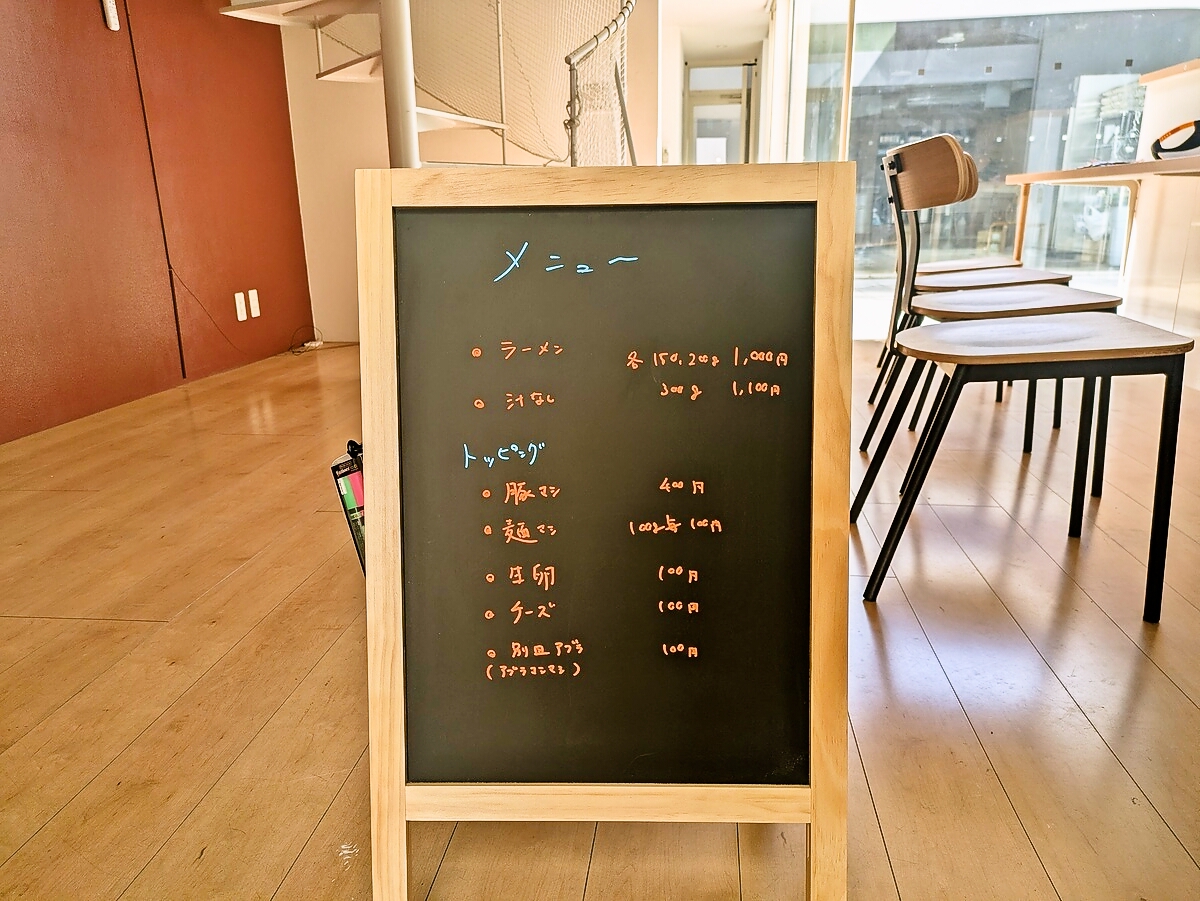 メニュー
○ ラーメン 各 150,200g 1,000円
300g 1,100円
○ 汁なし
トッピング
○ 豚マシ 400円
○ 麺マシ 100g毎 100円
○ 生卵 100円
○ チーズ 100円
○ 別皿アブラ 100円
(アブラマシマシ)